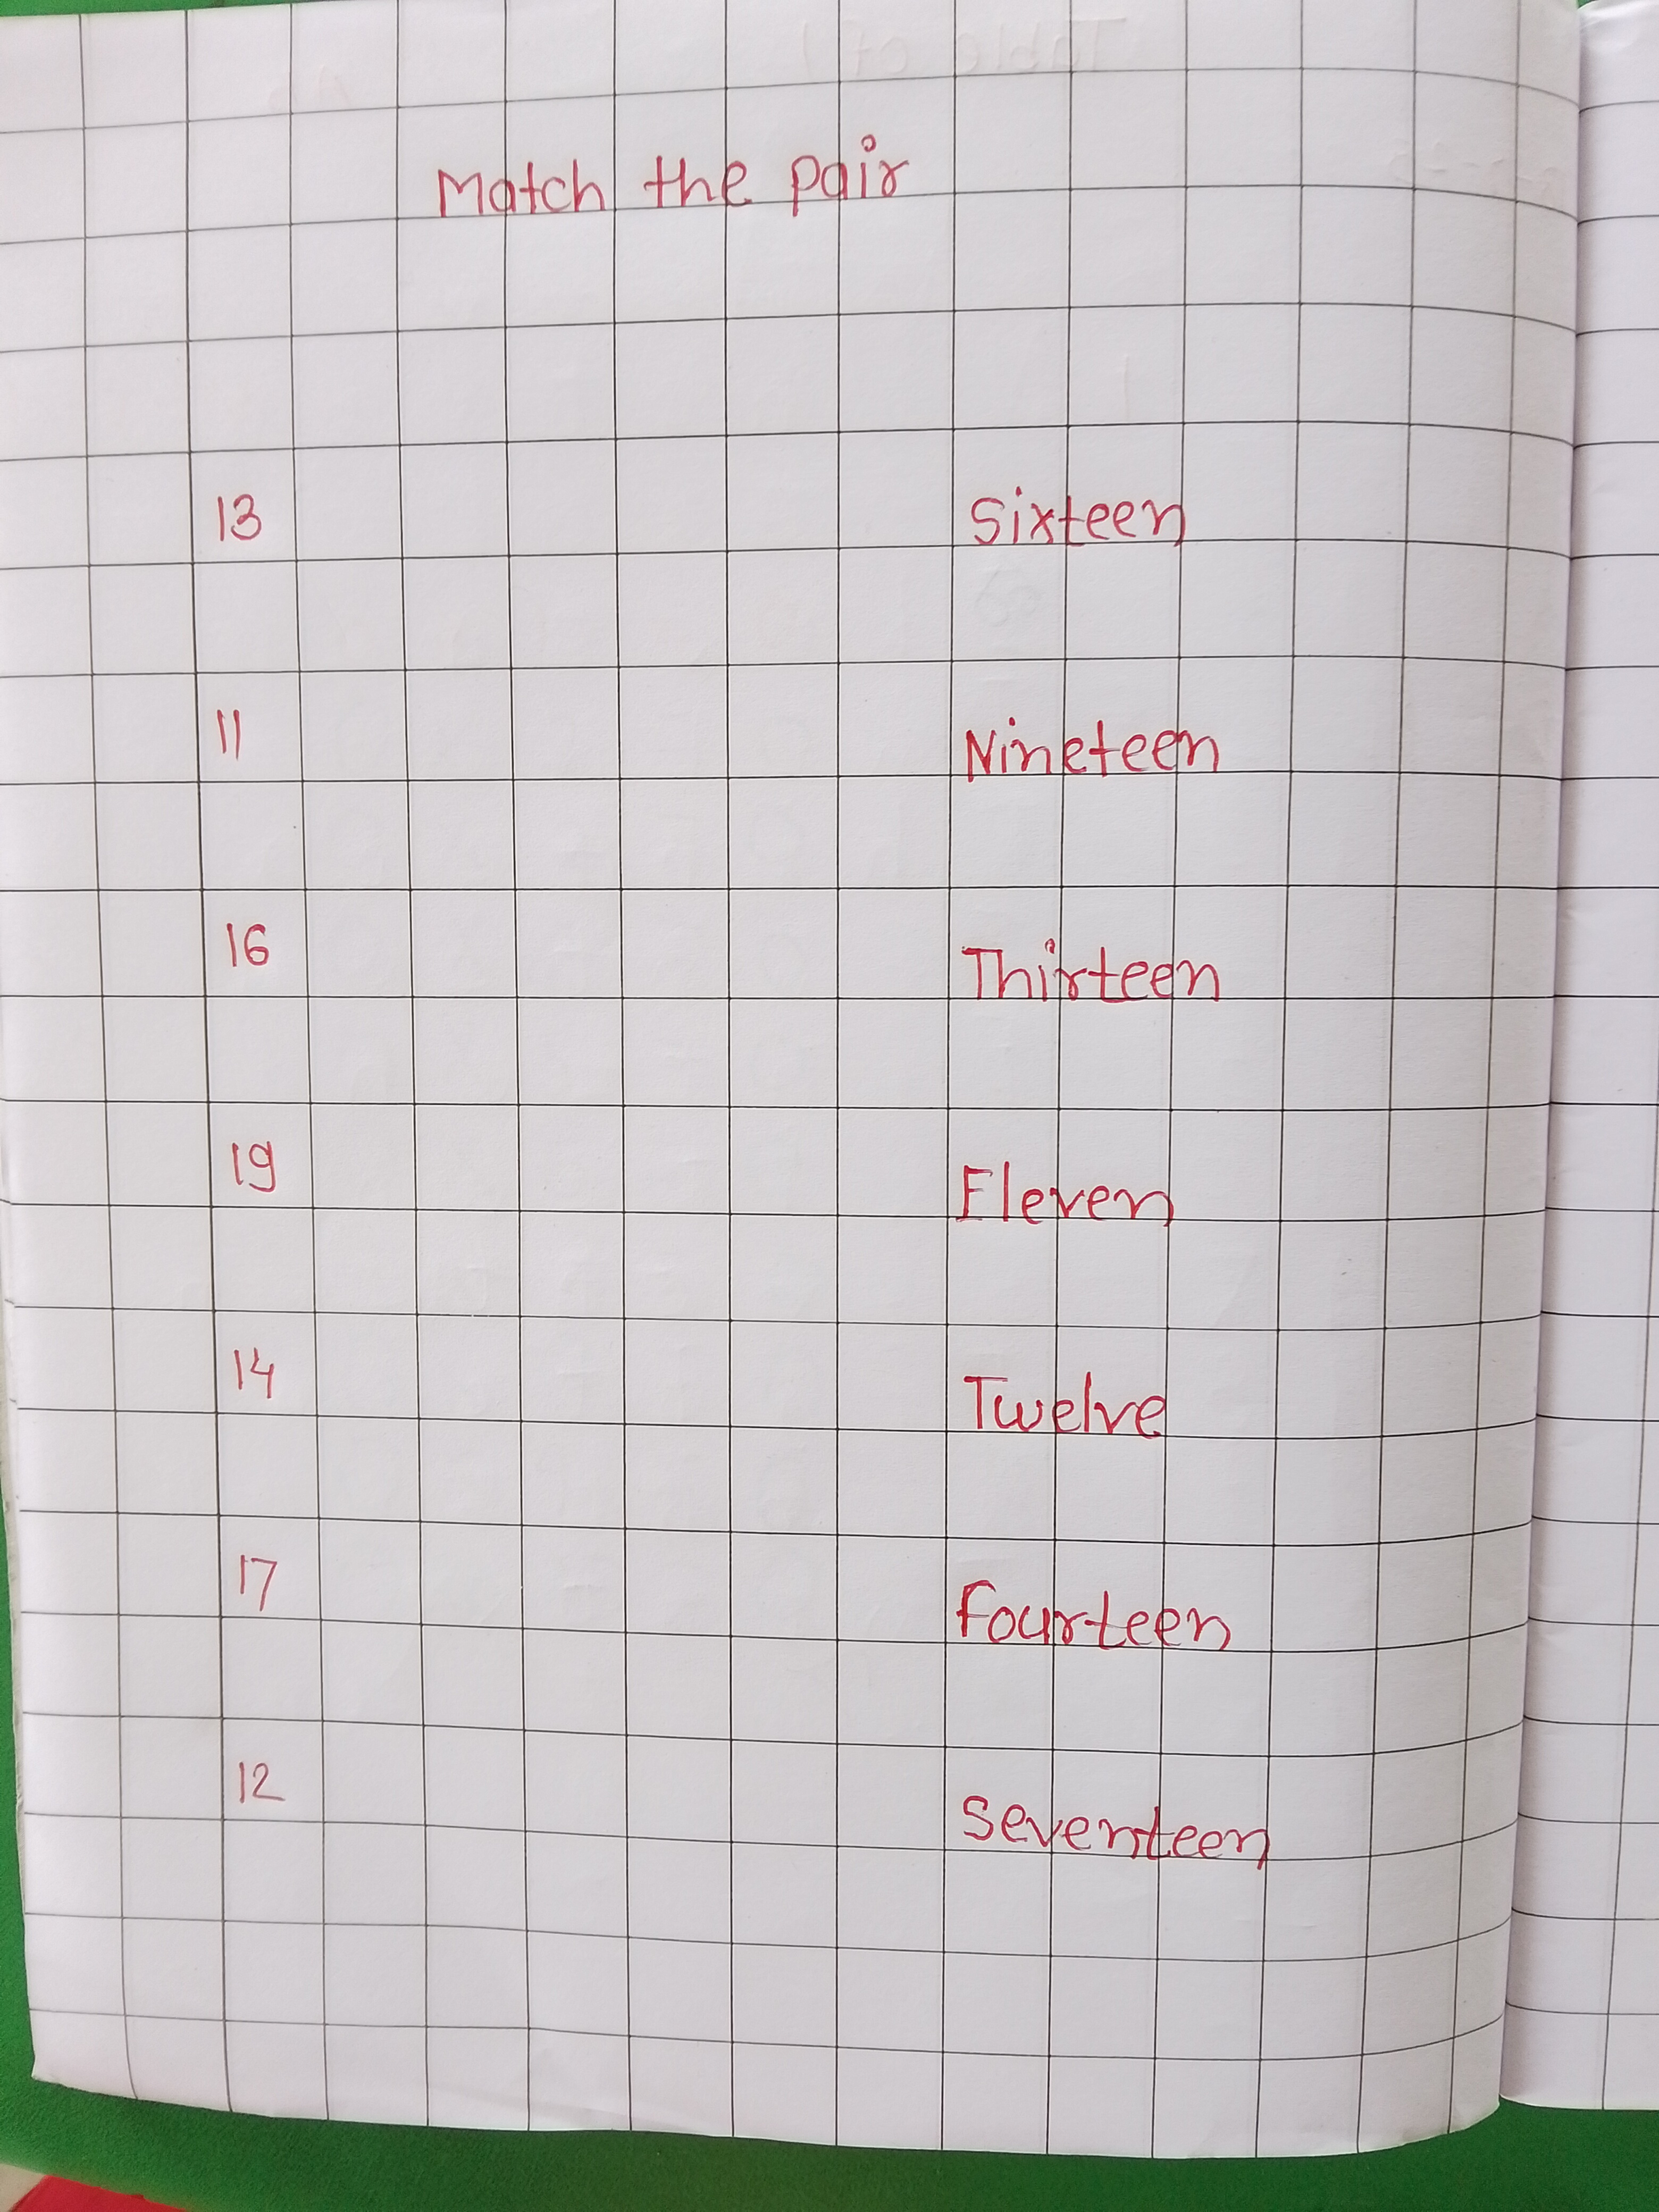 Match the pair
13 Sixteen
11 Nineteen
16 Thirteen
19 Eleven
14 Twelve
17 fourteen
12 Seventeen